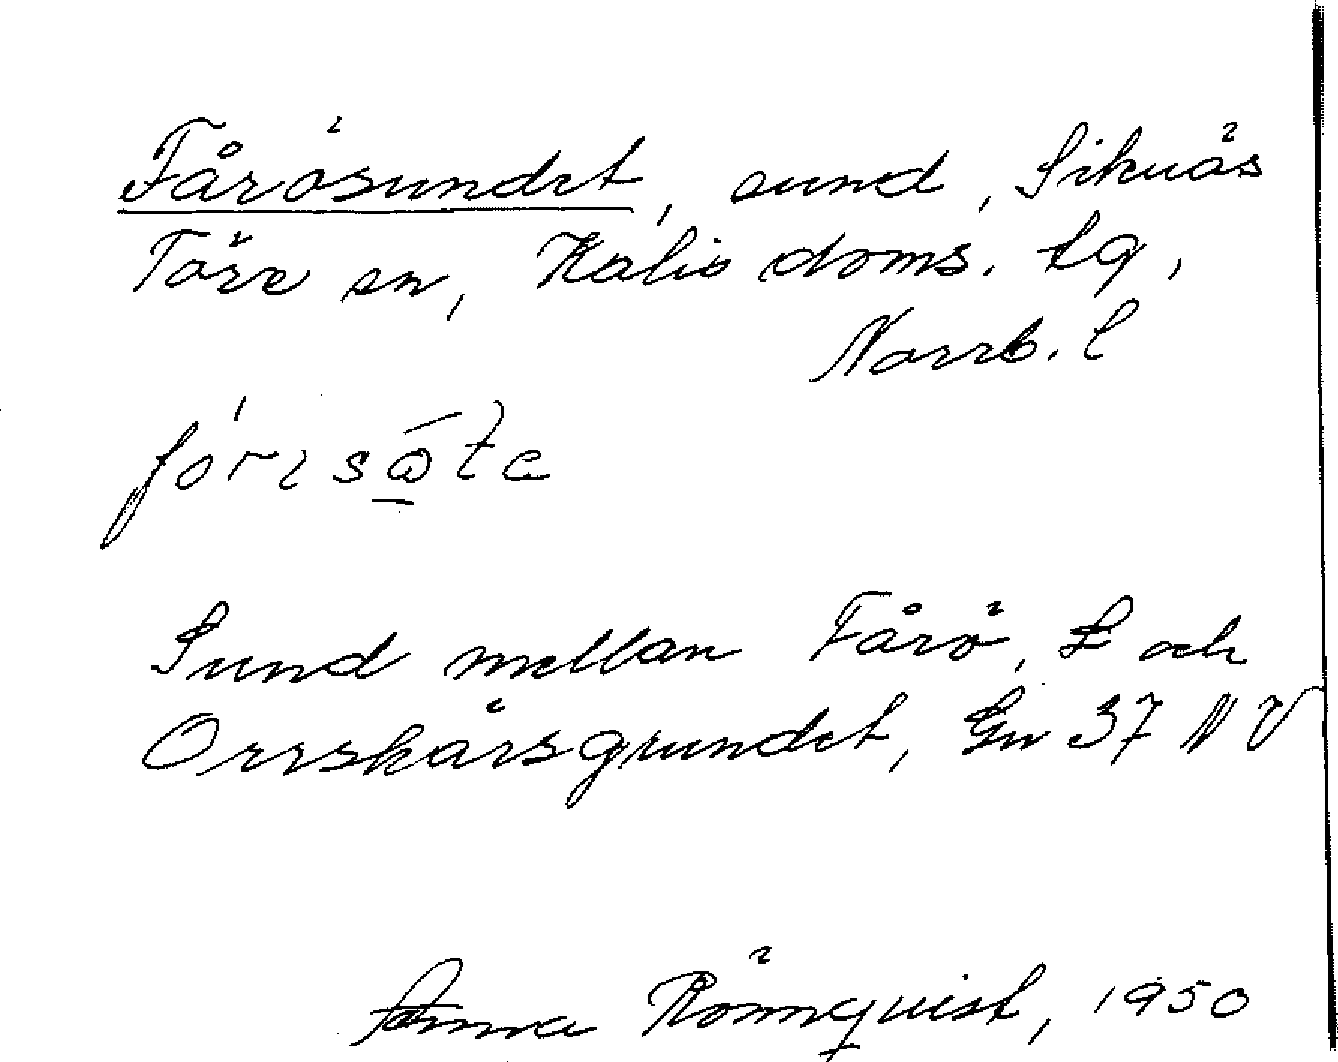 Fårösundet, sund, Siknäs
Töre sn, Kalix doms. lg,
Norrb. l
Sund mellan Fårö, L och
Orrskärsgrundet, Gn 37 NV
Anna Rönnqvist, 1950